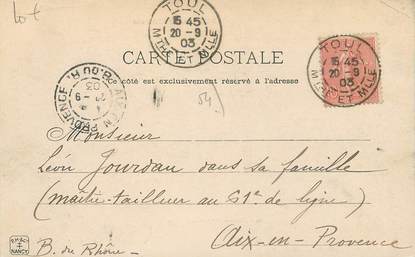 Lot
TOUL
15 45
20 - 9
03
MTHE ET MLLE
CARTE POSTALE
TOUL
15 45
20 - 9
03
MTHE ET MLLE
côté est exclusivement réservé à l'adresse
AIX EN PROVENCE
03
54
Monsieur
Léon Jourdan dans sa famille
(maître-tailleur au 61e de ligne)
Aix-en-Provence
B. du Rhône
NANCY